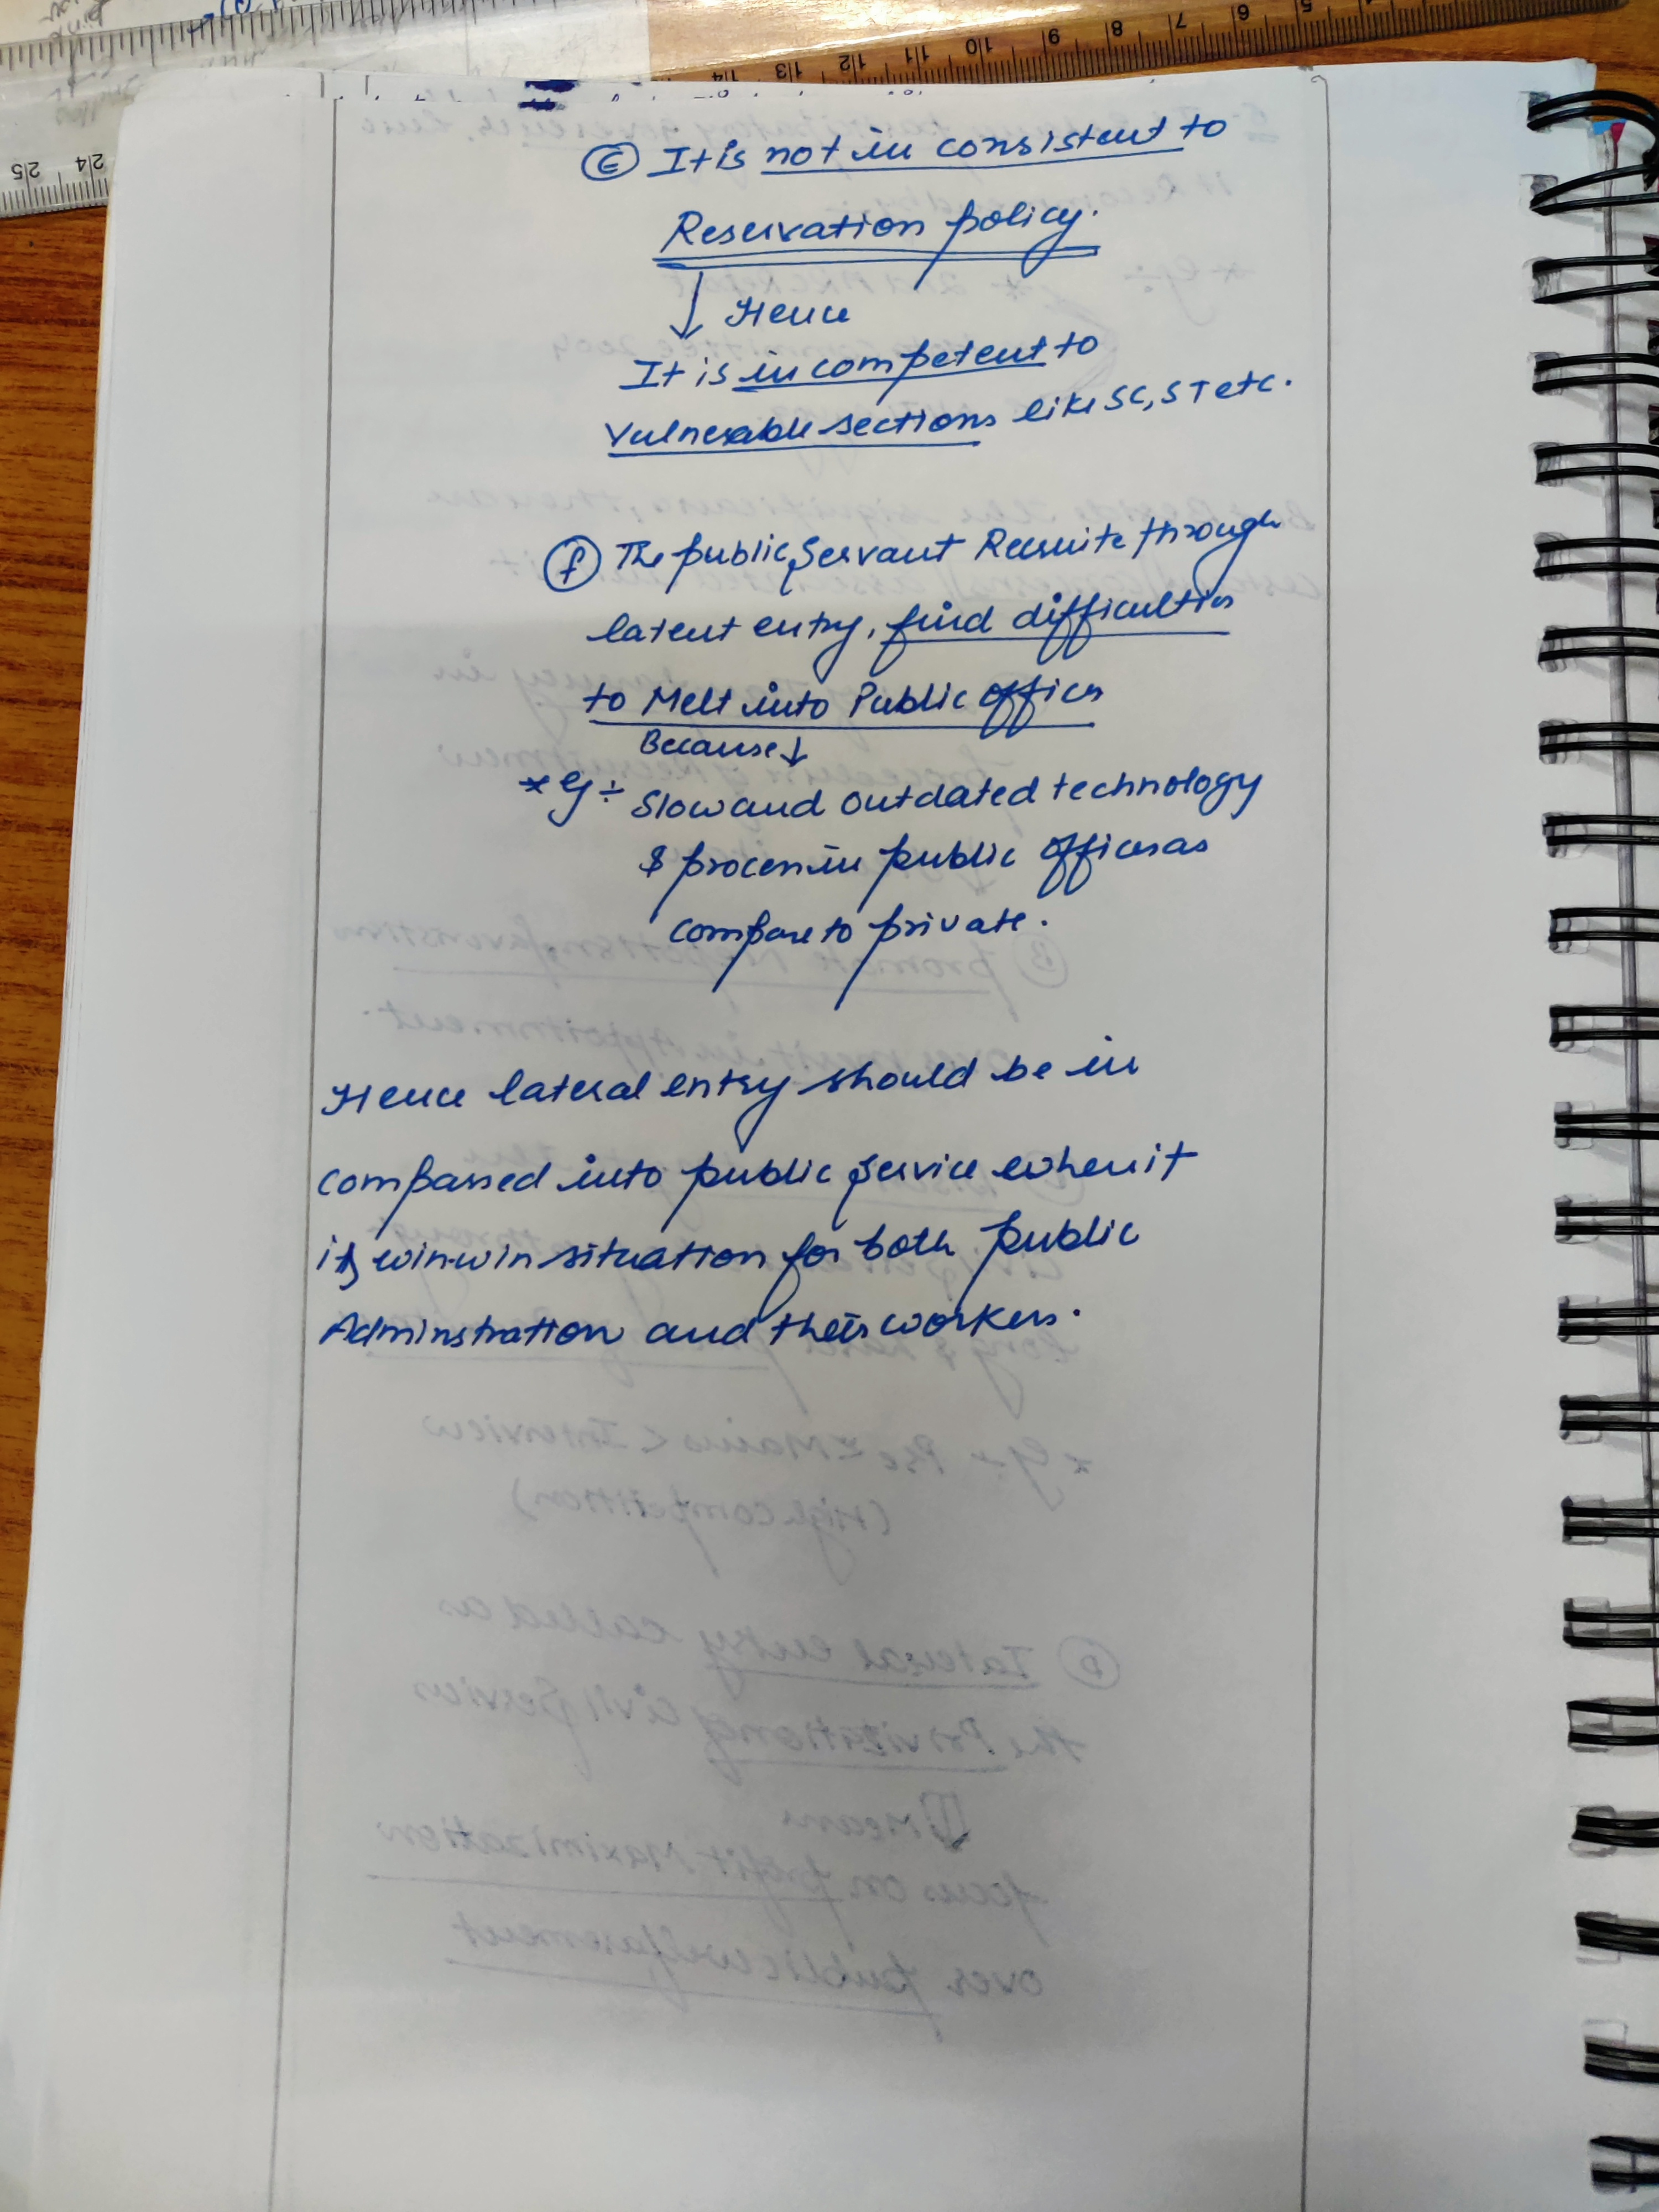 Ⓔ It is not in consistent to
Reservation policy.
↓ Hence
It is in competent to
vulnerable sections like SC, ST etc.
ⓕ The public servant Recruite through
latent entry, find difficulties
to Melt into Public offices
Because ↓
*eg ÷ Slow and outdated technology
& process in public offices as
compare to private.
Hence lateral entry should be in
compassed into public service when it
its win-win situation for both public
Adminstration and their workers.